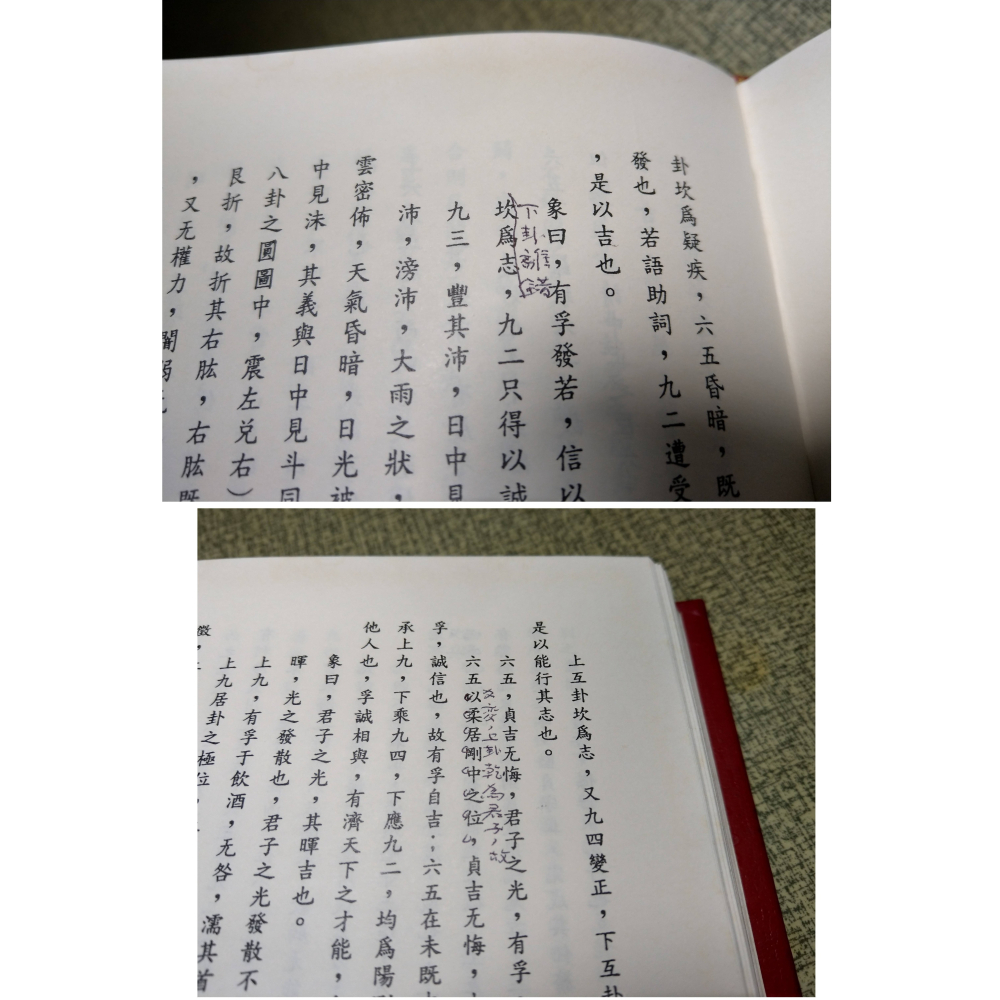 卦坎爲疑疾，六五昏暗，既
發也，若語助詞，九二遭受
，是以吉也。
象曰，有孚發若，信以
下卦離錯
坎爲志，九二只得以誠
九三，豐其沛，日中見
沛，滂沛，大雨之狀，
雲密佈，天氣昏暗，日光被
中見沬，其義與日中見斗同
八卦之圓圖中，震左兑右）
艮折，故折其右肱，右肱既
，又无權力，闇弱
上互卦坎爲志，又九四變正，下互卦
是以能行其志也。
六五，貞吉无悔，君子之光，有孚
爻變上卦乾為君子，故
六五以柔居剛中之位，貞吉无悔，
孚，誠信也，故有孚自吉；六五在未既
承上九，下乘九四，下應九二，均爲陽
他人也，孚誠相與，有濟天下之才能，
象曰，君子之光，其暉吉也。
暉，光之發散也，君子之光發散不
上九，有孚于飲酒，无咎，濡其首
上九居卦之極位，
徵，